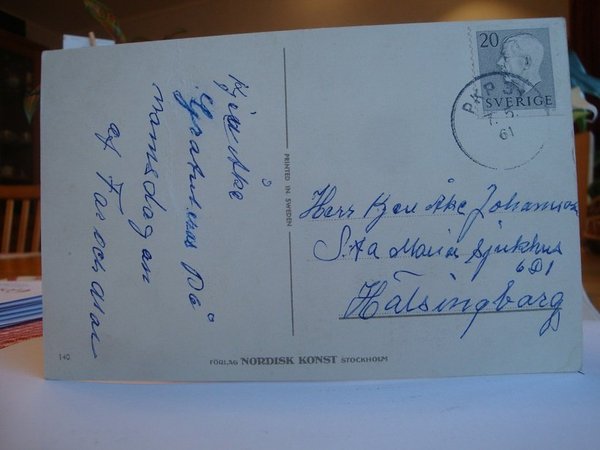 Kjell Åke
Gratuleras På
namsdagen
af Far och Mor
PRINTED IN SWEDEN
20
SVERIGE
61
Herr Kjell Åke Johansson
S:ta Maria Sjukhus
6D1
Hälsingborg
140
FÖRLAG NORDISK KONST STOCKHOLM